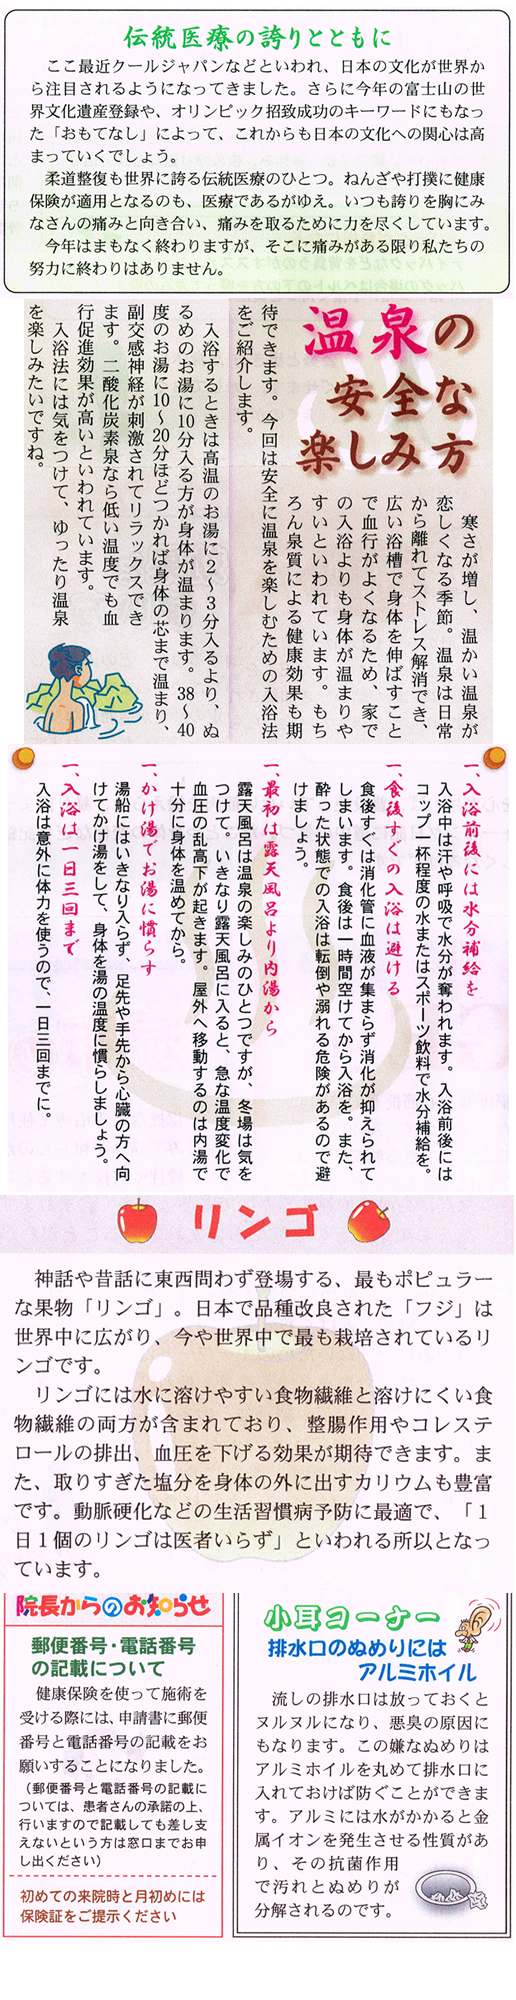 伝統医療の誇りとともに
ここ最近クールジャパンなどといわれ、日本の文化が世界か
ら注目されるようになってきました。さらに今年の富士山の世
界文化遺産登録や、オリンピック招致成功のキーワードにもなっ
た「おもてなし」によって、これからも日本の文化への関心は高
まっていくでしょう。
柔道整復も世界に誇る伝統医療のひとつ。ねんざや打撲に健康
保険が適用となるのも、医療であるがゆえ。いつも誇りを胸にみ
なさんの痛みと向き合い、痛みを取るために力を尽くしています。
今年はまもなく終わりますが、そこに痛みがある限り私たちの
努力に終わりはありません。
温泉の
安全な
楽しみ方
寒さが増し、温かい温泉が
恋しくなる季節。温泉は日常
から離れてストレス解消でき、
広い浴槽で身体を伸ばすこと
で血行がよくなるため、家で
の入浴よりも身体が温まりや
すいといわれています。もち
ろん泉質による健康効果も期
待できます。今回は安全に温泉を楽しむための入浴法
をご紹介します。
入浴するときは高温のお湯に2〜3分入るより、ぬ
るめのお湯に10分入る方が身体が温まります。38〜40
度のお湯に10〜20分ほどつかれば身体の芯まで温まり、
副交感神経が刺激されてリラックスでき
ます。二酸化炭素泉なら低い温度でも血
行促進効果が高いといわれています。
入浴法には気をつけて、ゆったり温泉
を楽しみたいですね。
一、入浴前後には水分補給を
入浴中は汗や呼吸で水分が奪われます。入浴前後には
コップ一杯程度の水またはスポーツ飲料で水分補給を。
一、食後すぐの入浴は避ける
食後すぐは消化管に血液が集まらず消化が抑えられて
しまいます。食後は一時間空けてから入浴を。また、
酔った状態での入浴は転倒や溺れる危険があるので避
けましょう。
一、最初は露天風呂より内湯から
露天風呂は温泉の楽しみのひとつですが、冬場は気を
つけて。いきなり露天風呂に入ると、急な温度変化で
血圧の乱高下が起きます。屋外へ移動するのは内湯で
十分に身体を温めてから。
一、かけ湯でお湯に慣らす
湯船にはいきなり入らず、足先や手先から心臓の方へ向
けてかけ湯をして、身体を湯の温度に慣らしましょう。
一、入浴は一日三回まで
入浴は意外に体力を使うので、一日三回までに。
リンゴ
神話や昔話に東西問わず登場する、最もポピュラー
な果物「リンゴ」。日本で品種改良された「フジ」は
世界中に広がり、今や世界中で最も栽培されているリ
ンゴです。
リンゴには水に溶けやすい食物繊維と溶けにくい食
物繊維の両方が含まれており、整腸作用やコレステ
ロールの排出、血圧を下げる効果が期待できます。ま
た、取りすぎた塩分を身体の外に出すカリウムも豊富
です。動脈硬化などの生活習慣病予防に最適で、「１
日１個のリンゴは医者いらず」といわれる所以となっ
ています。
院長からのお知らせ
郵便番号・電話番号
の記載について
健康保険を使って施術を
受ける際には、申請書に郵便
番号と電話番号の記載をお
願いすることになりました。
（郵便番号と電話番号の記載に
ついては、患者さんの承諾の上、
行いますので記載しても差し支
えないという方は窓口までお申
し出ください）
初めての来院時と月初めには
保険証をご提示ください
小耳コーナー
排水口のぬめりには
アルミホイル
流しの排水口は放っておくと
ヌルヌルになり、悪臭の原因に
もなります。この嫌なぬめりは
アルミホイルを丸めて排水口に
入れておけば防ぐことができま
す。アルミには水がかかると金
属イオンを発生させる性質があ
り、その抗菌作用
で汚れとぬめりが
分解されるのです。